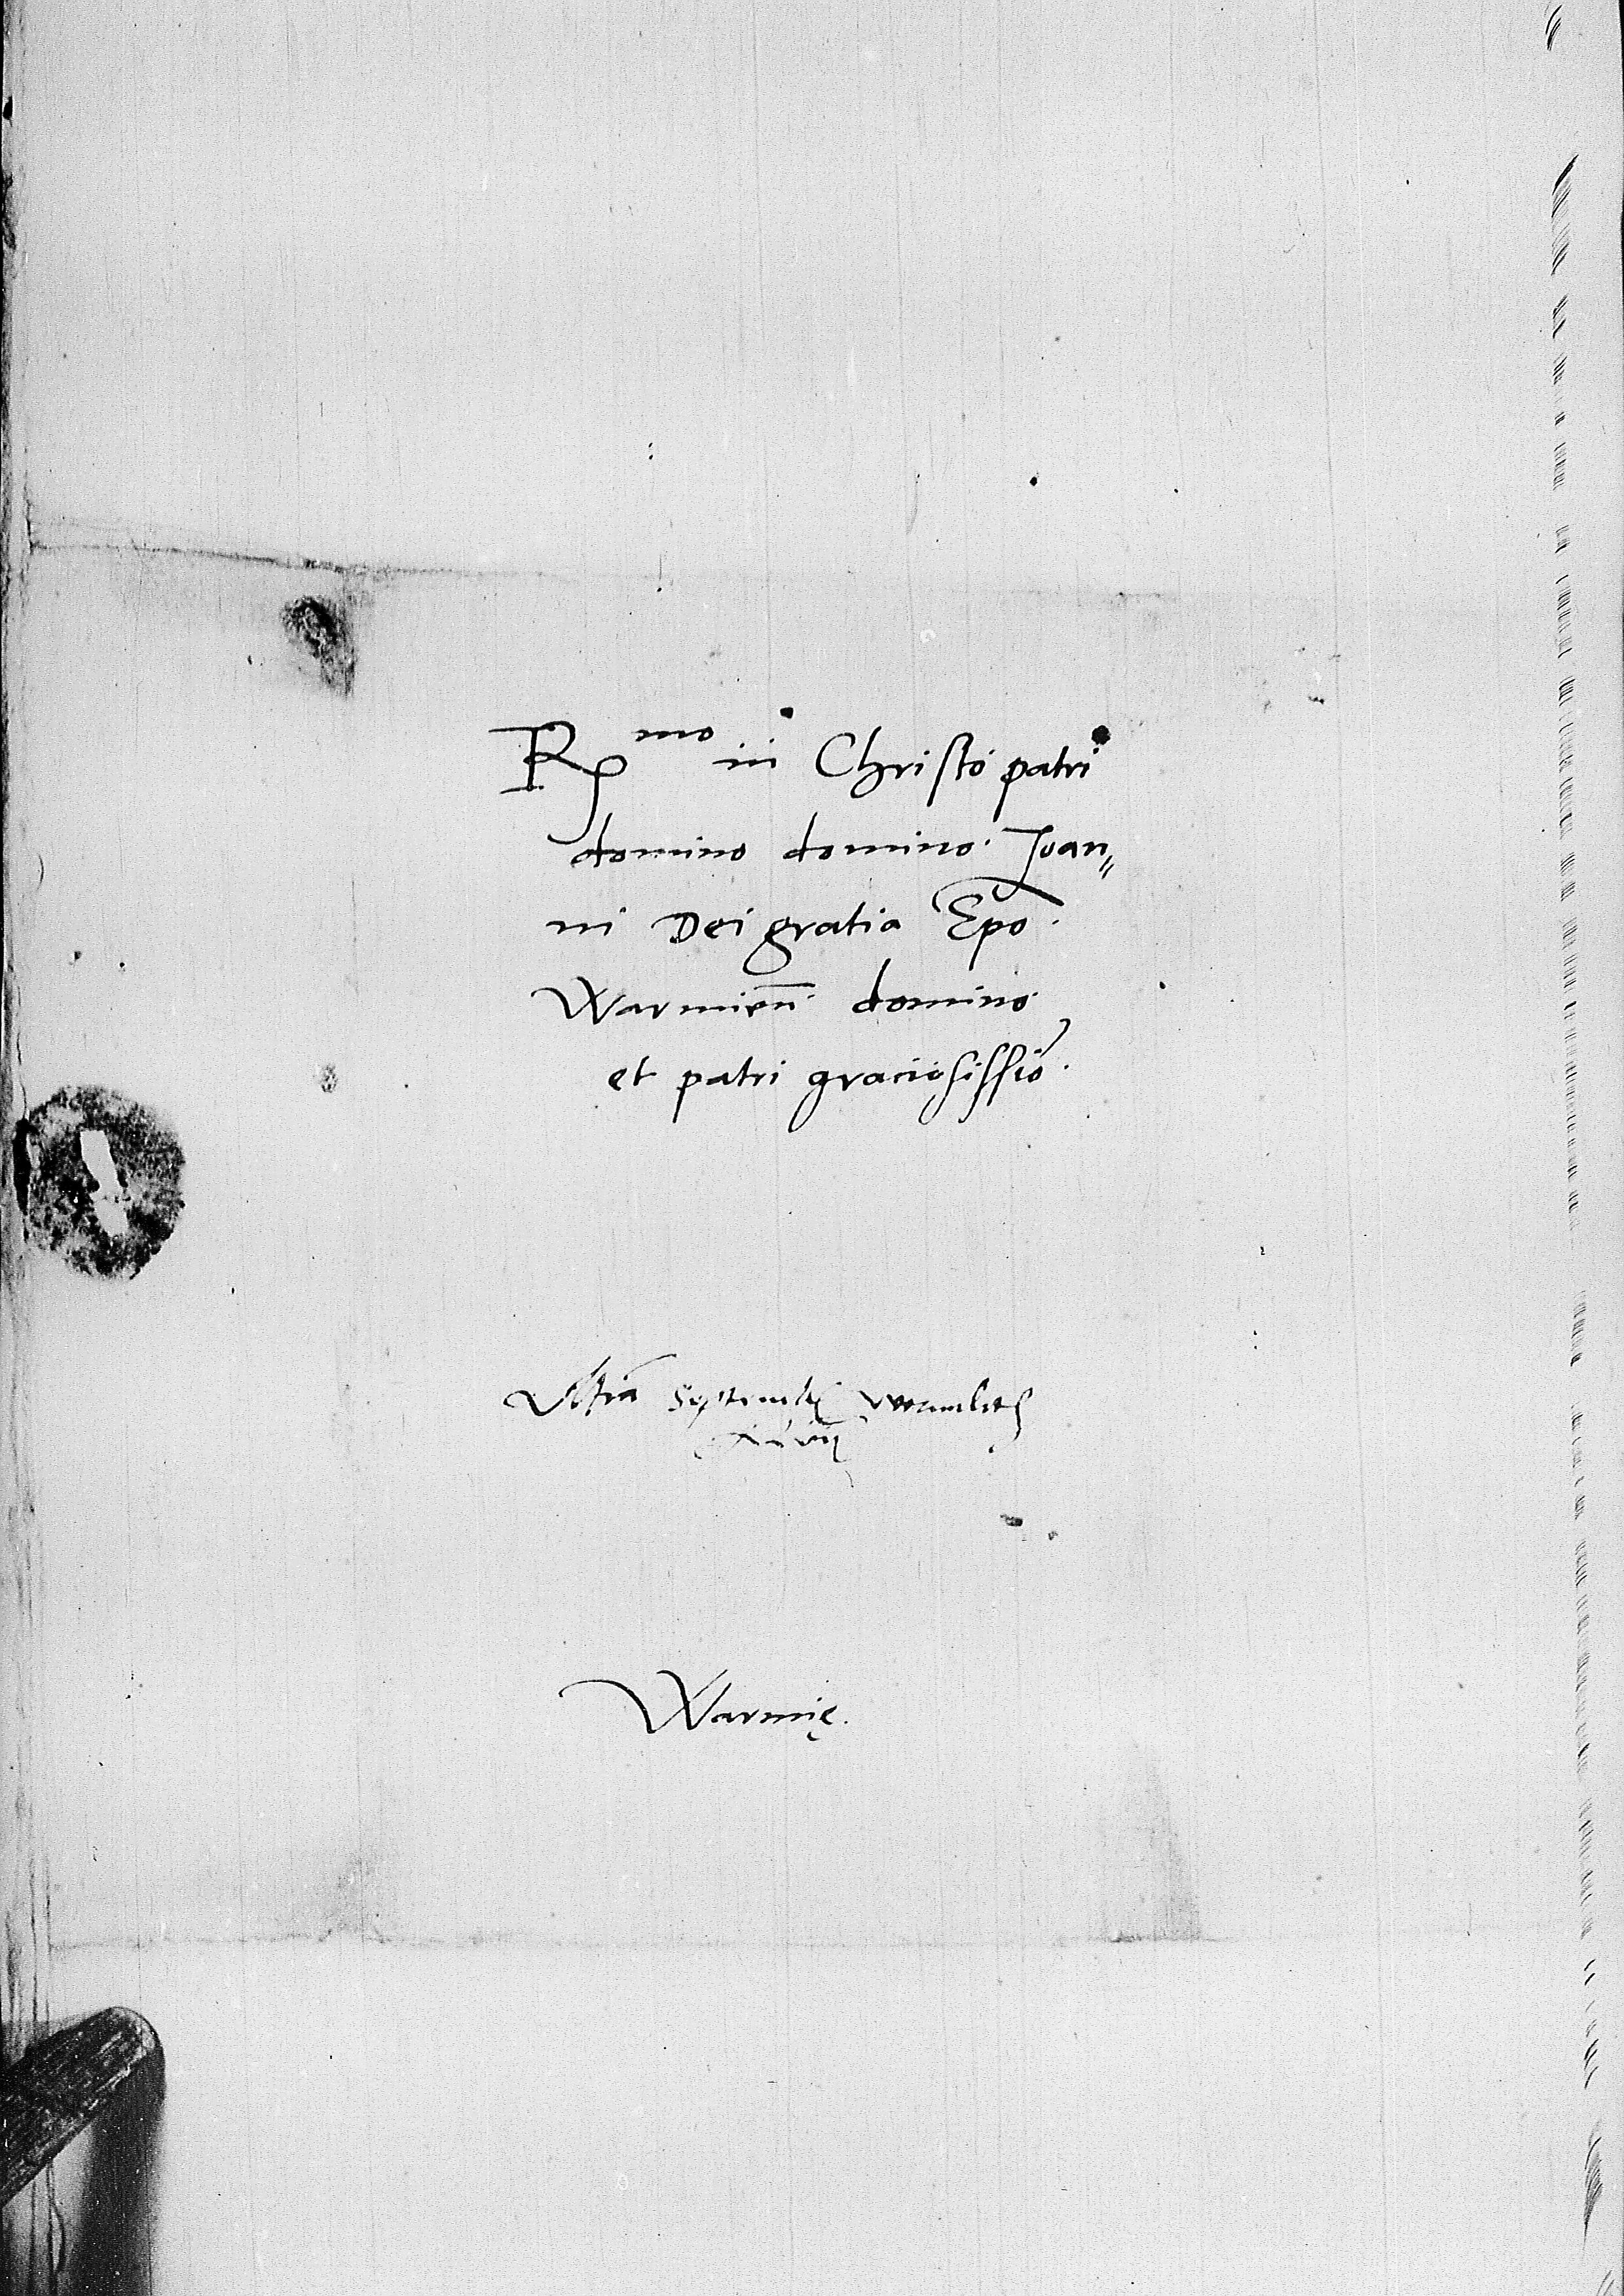 R<sup>mo</sup> in Christo patri
domino domino. Joan⸗
ni Dei gratia Epo.
Warmien̄. domino
et patri graciosissio.
Septemb
Warmię.